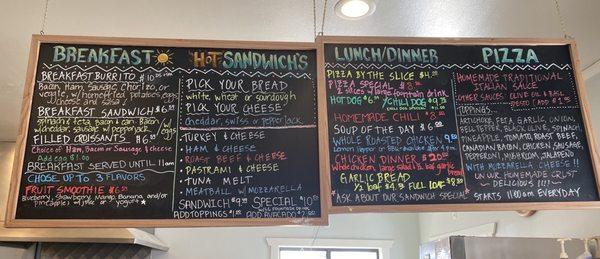 BREAKFAST
BREAKFAST BURRITO $10
Bacon, Ham, Sausage, Chorizo, or
veggie, w/ homefried potatoes, eggs
cheese and salsa
BREAKFAST SANDWICH $6.95
spinach & feta
w/ cheddar, sausage w/ pepperjack
FILLED CROISSANTS $6
Choice of Ham, Bacon or Sausage & Cheese
Add egg $1.00
BREAKFAST SERVED UNTIL 11am
CHOSE UP TO 3 FLAVORS
FRUIT SMOOTHIE $6
Blueberry, Strawberry, Mango, Banana, and/or
Pineapple w/ juice or yogurt
HOT SANDWICH'S
PICK YOUR BREAD
white wheat or sourdough
PICK YOUR CHEESE
cheddar, swiss or pepperjack
TURKEY & CHEESE
HAM & CHEESE
ROAST BEEF & CHEESE
PASTRAMI & CHEESE
TUNA MELT
MEATBALL W/ MOZZARELLA
SANDWICH $9.95 SPECIAL $10
ADD TOPPINGS $1 ADD AVOCADO $2
LUNCH/DINNER
PIZZA BY THE SLICE $4
PIZZA SPECIAL
2 slices w/ large fountain drink
HOT DOG $6 CHILI DOG
HOMEMADE CHILI $8
SOUP OF THE DAY $6
WHOLE ROASTED CHICKEN
CHICKEN DINNER $20
GARLIC BREAD
1/2 loaf $4 FULL LOAF $8
*ASK ABOUT OUR SANDWICH SPECIAL
PIZZA
HOMEMADE TRADITIONAL
ITALIAN SAUCE
OTHER SAUCES: OLIVE OIL & BASIL
PESTO
TOPPINGS
ARTICHOKE, FETA, GARLIC, ONION,
BELL PEPPER, BLACK OLIVE, SPINACH,
PINEAPPLE, TOMATO, ROAST BEEF,
CANADIAN BACON, CHICKEN, SAUSAGE,
PEPPERONI, MUSHROOM, JALAPENO
WITH MOZZARELLA CHEESE
ON OUR HOMEMADE CRUST
DELICIOUS !!!!
STARTS 11:00am EVERYDAY